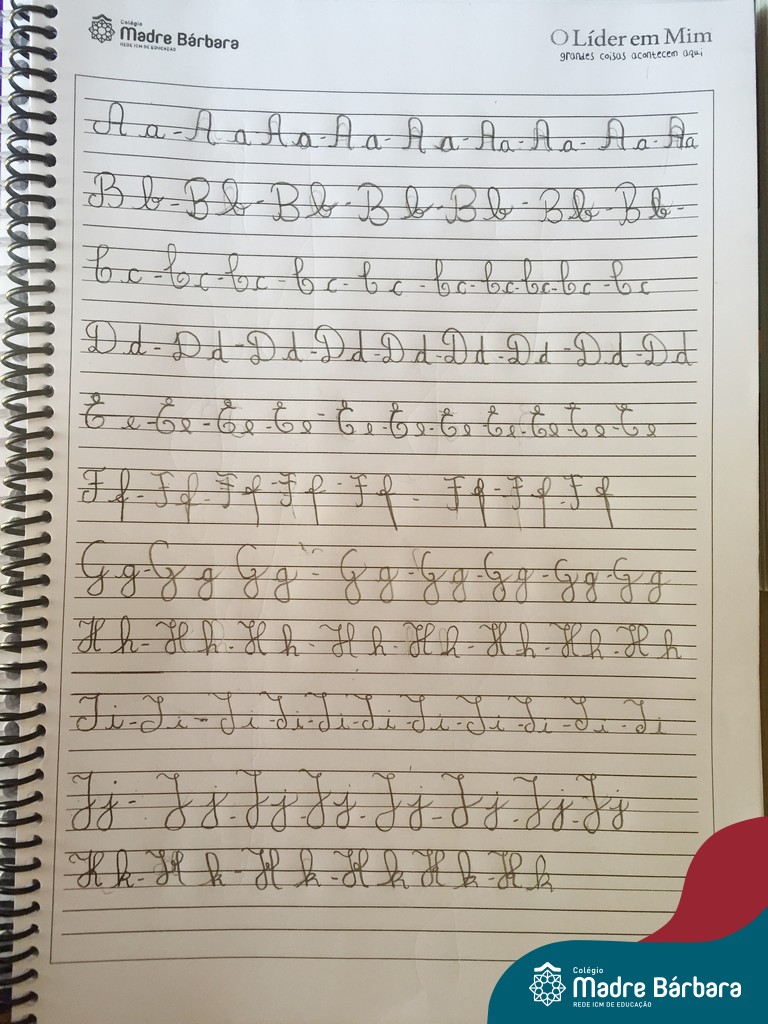 Colégio
Madre Bárbara
REDE ICM DE EDUCAÇÃO
O Líder em Mim
grandes coisas acontecem aqui
A a - A a A a - A a - A a - A a - A a - A a - A a
B b - B b - B b - B b - B b - B b - B b -
C c - C c - C c - C c - C c - C c - C c C c - C c - C c
D d - D d - D d - D d - D d - D d - D d - D d - D d
E e - E e - E e - E e - E e - E e - E e - E e - E e - E e - E e
F f - F f - F f - F f - F f - F f - F f - F f
G g - G g G g - G g - G g - G g - G g - G g
H h - H h - H h - H h - H h - H h - H h - H h
I i - I i - I i - I i - I i - I i - I i - I i - I i - I i - I i
J j - J j - J j - J j - J j - J j - J j - J j
K k - K k - K k - K k K k - K k
Colégio
Madre Bárbara
REDE ICM DE EDUCAÇÃO